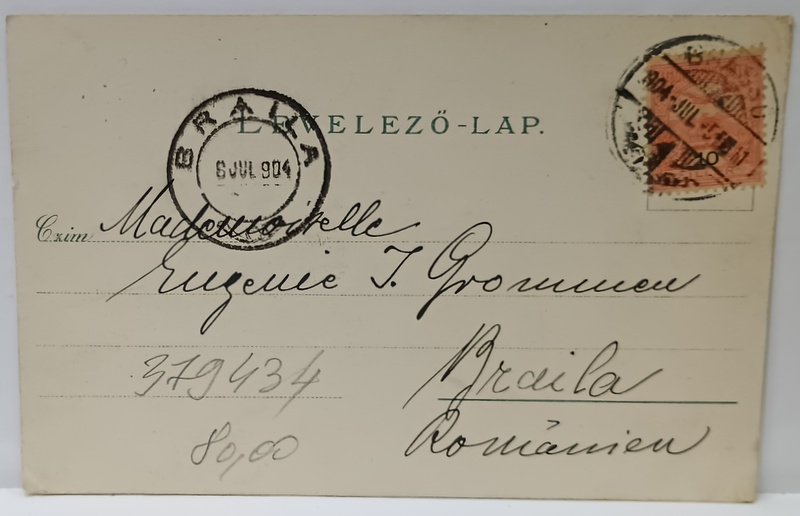 BRAILA
6 JUL 904
LEVELEZŐ-LAP.
904 JUL.
10
Czim Mademoiselle
Eugenie I. Grommen
Braila
Românien
379434
80,00